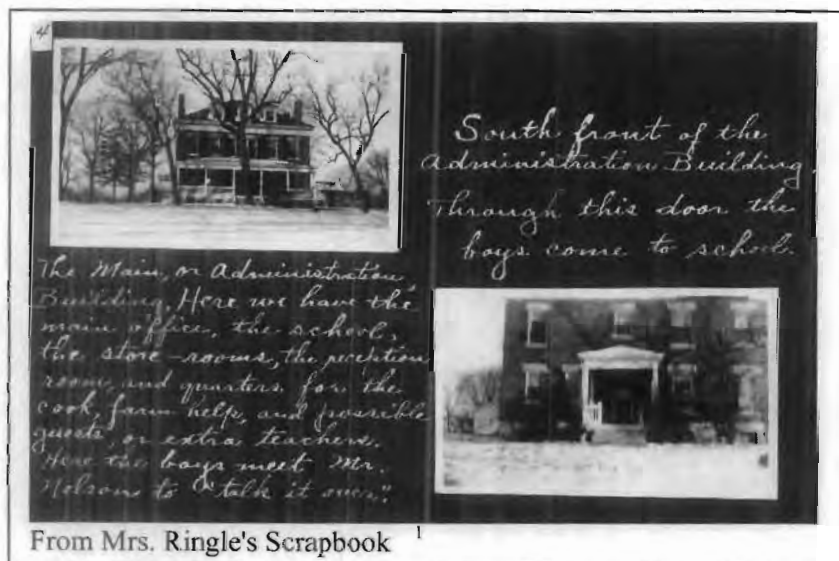 4
The Main, or Administration,
Building. Here we have the
main office, the school,
the store-rooms, the reception
room, and quarters for the
cook, farm help, and possible
guests, or extra teachers.
Here the boys meet Mr.
Nelson to "talk it over".
South front of the
Administration Building.
Through this door the
boys come to school.
From Mrs. Ringle's Scrapbook 1